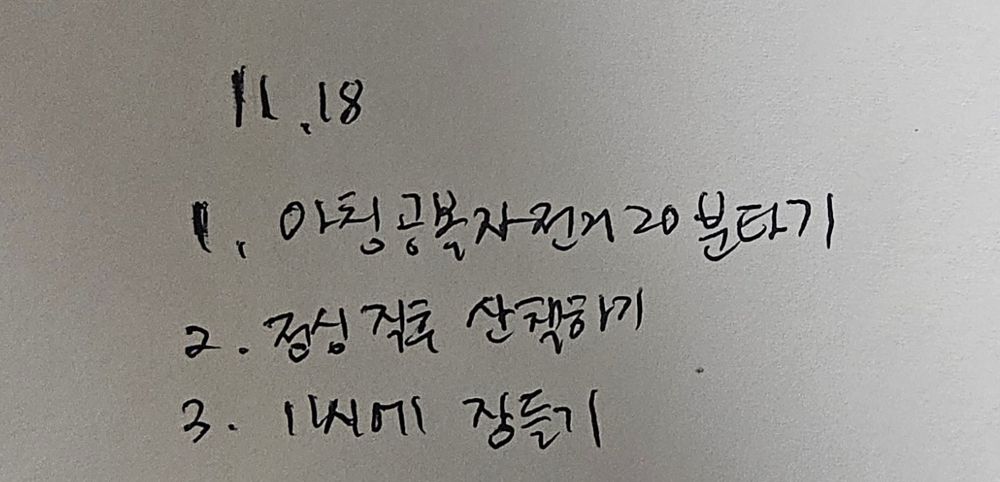 11.18
1. 아침공복자전거20분타기
2. 점심직후 산책하기
3. 11시에 잠들기